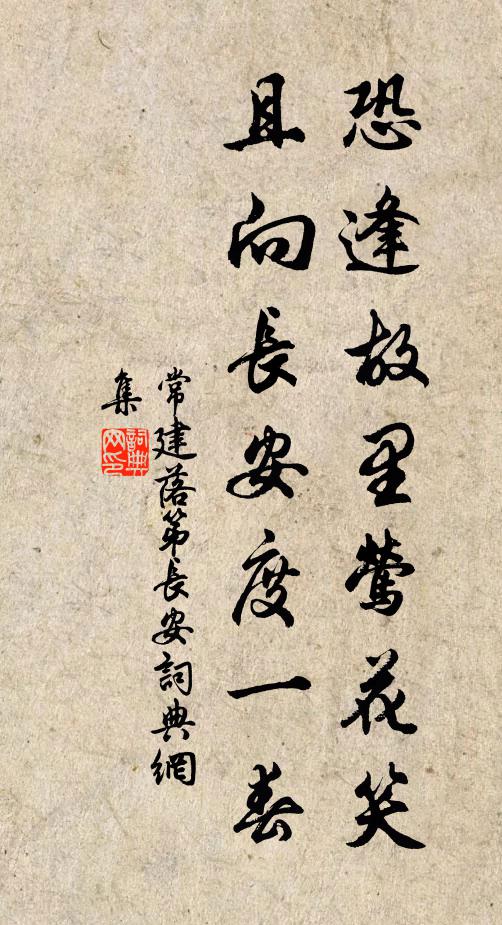 恐逢故里鶯花笑
且向長安度一春
常建落第長安詞典網
集
詞典
网印